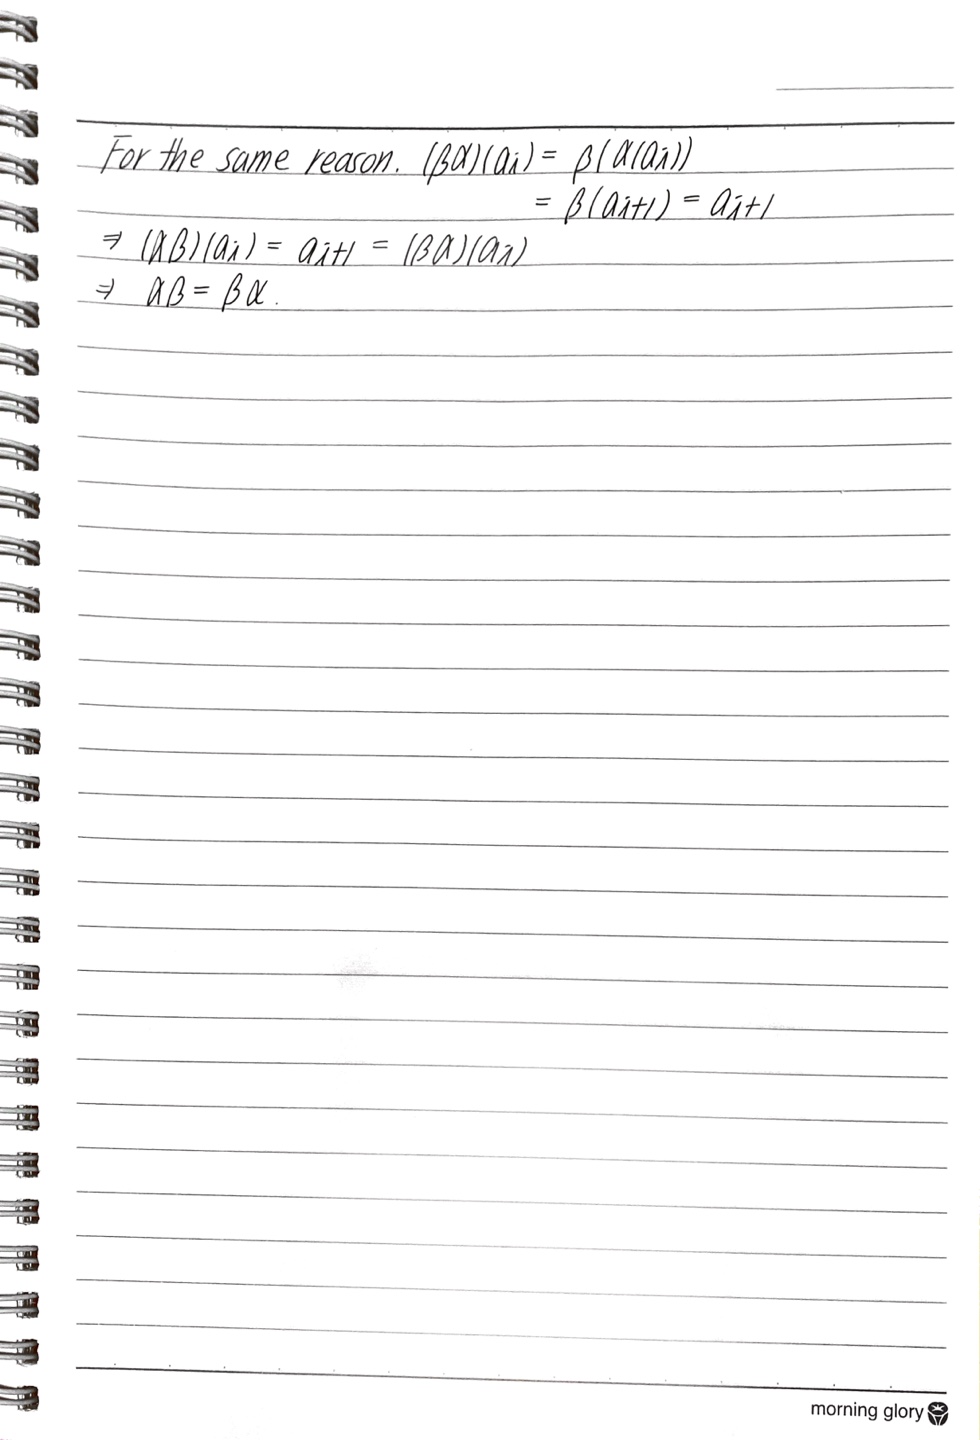 For the same reason. (βα)(ai) = β(α(ai))
= β(ai+1) = ai+1
⇒ (αβ)(ai) = ai+1 = (βα)(ai)
⇒ αβ = βα.
morning glory